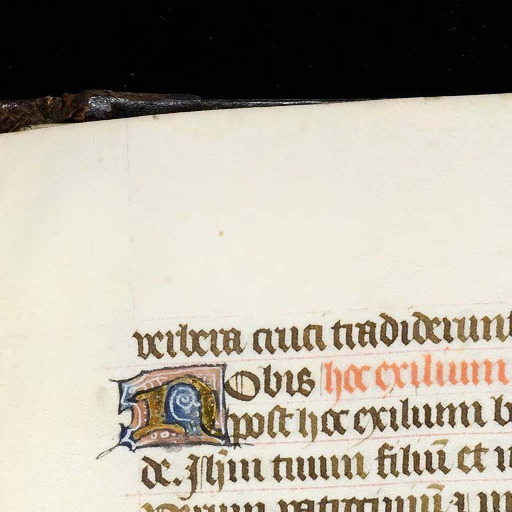 verbera cruci tradiderunt
Nobis hoc exilium
post hoc exilium b
de. Jhm tuum filiū et